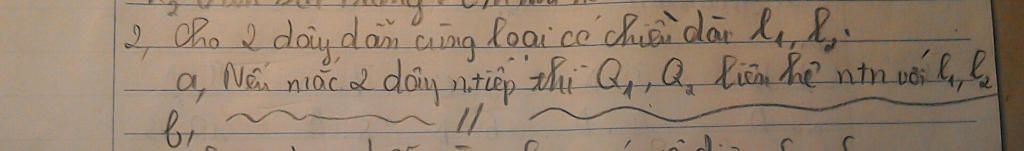 2, Cho 2 dây dẫn cùng loại có chiều dài l₁, l₂.
a, Nếu mắc 2 dây n.tiếp thì Q₁, Q₂ liên hệ ntn với l₁, l₂
b, ~ // ~